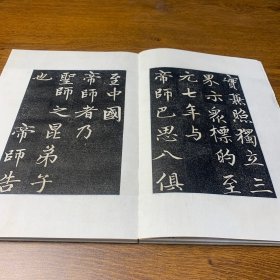 實兼照獨立三
界示眾標的至
元七年與
帝師巴思八俱
至中國
帝師者乃
聖師之昆弟子
也 帝師告